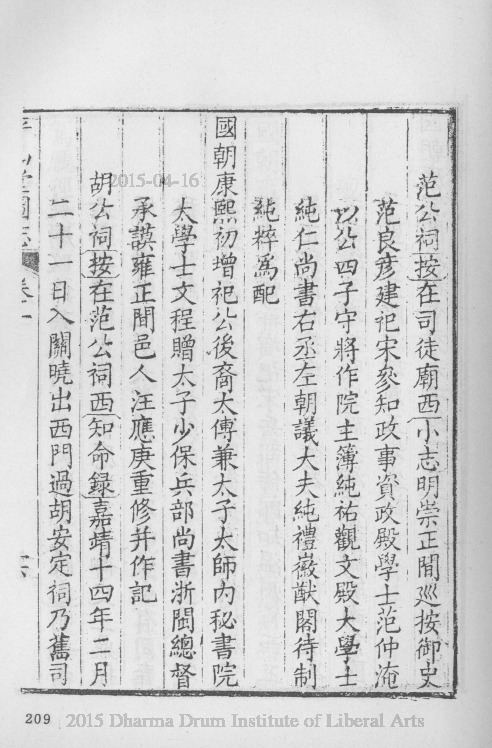 范公祠按在司徒廟西小志明崇正間巡按御史
范良彥建祀宋參知政事資政殿學士范仲淹
以公四子守將作院主簿純祐觀文殿大學士
純仁尚書右丞左朝議大夫純禮徽猷閣待制
純粹爲配
國朝康熙初增祀公後裔太傅兼太子太師內秘書院
大學士文程贈太子少保兵部尚書浙閩總督
承謨雍正間邑人汪應庚重修并作記
胡公祠按在范公祠西知命録嘉靖十四年二月
二十一日入關曉出西門過胡安定祠乃舊司
卷一
2015-04-16
209
2015 Dharma Drum Institute of Liberal Arts